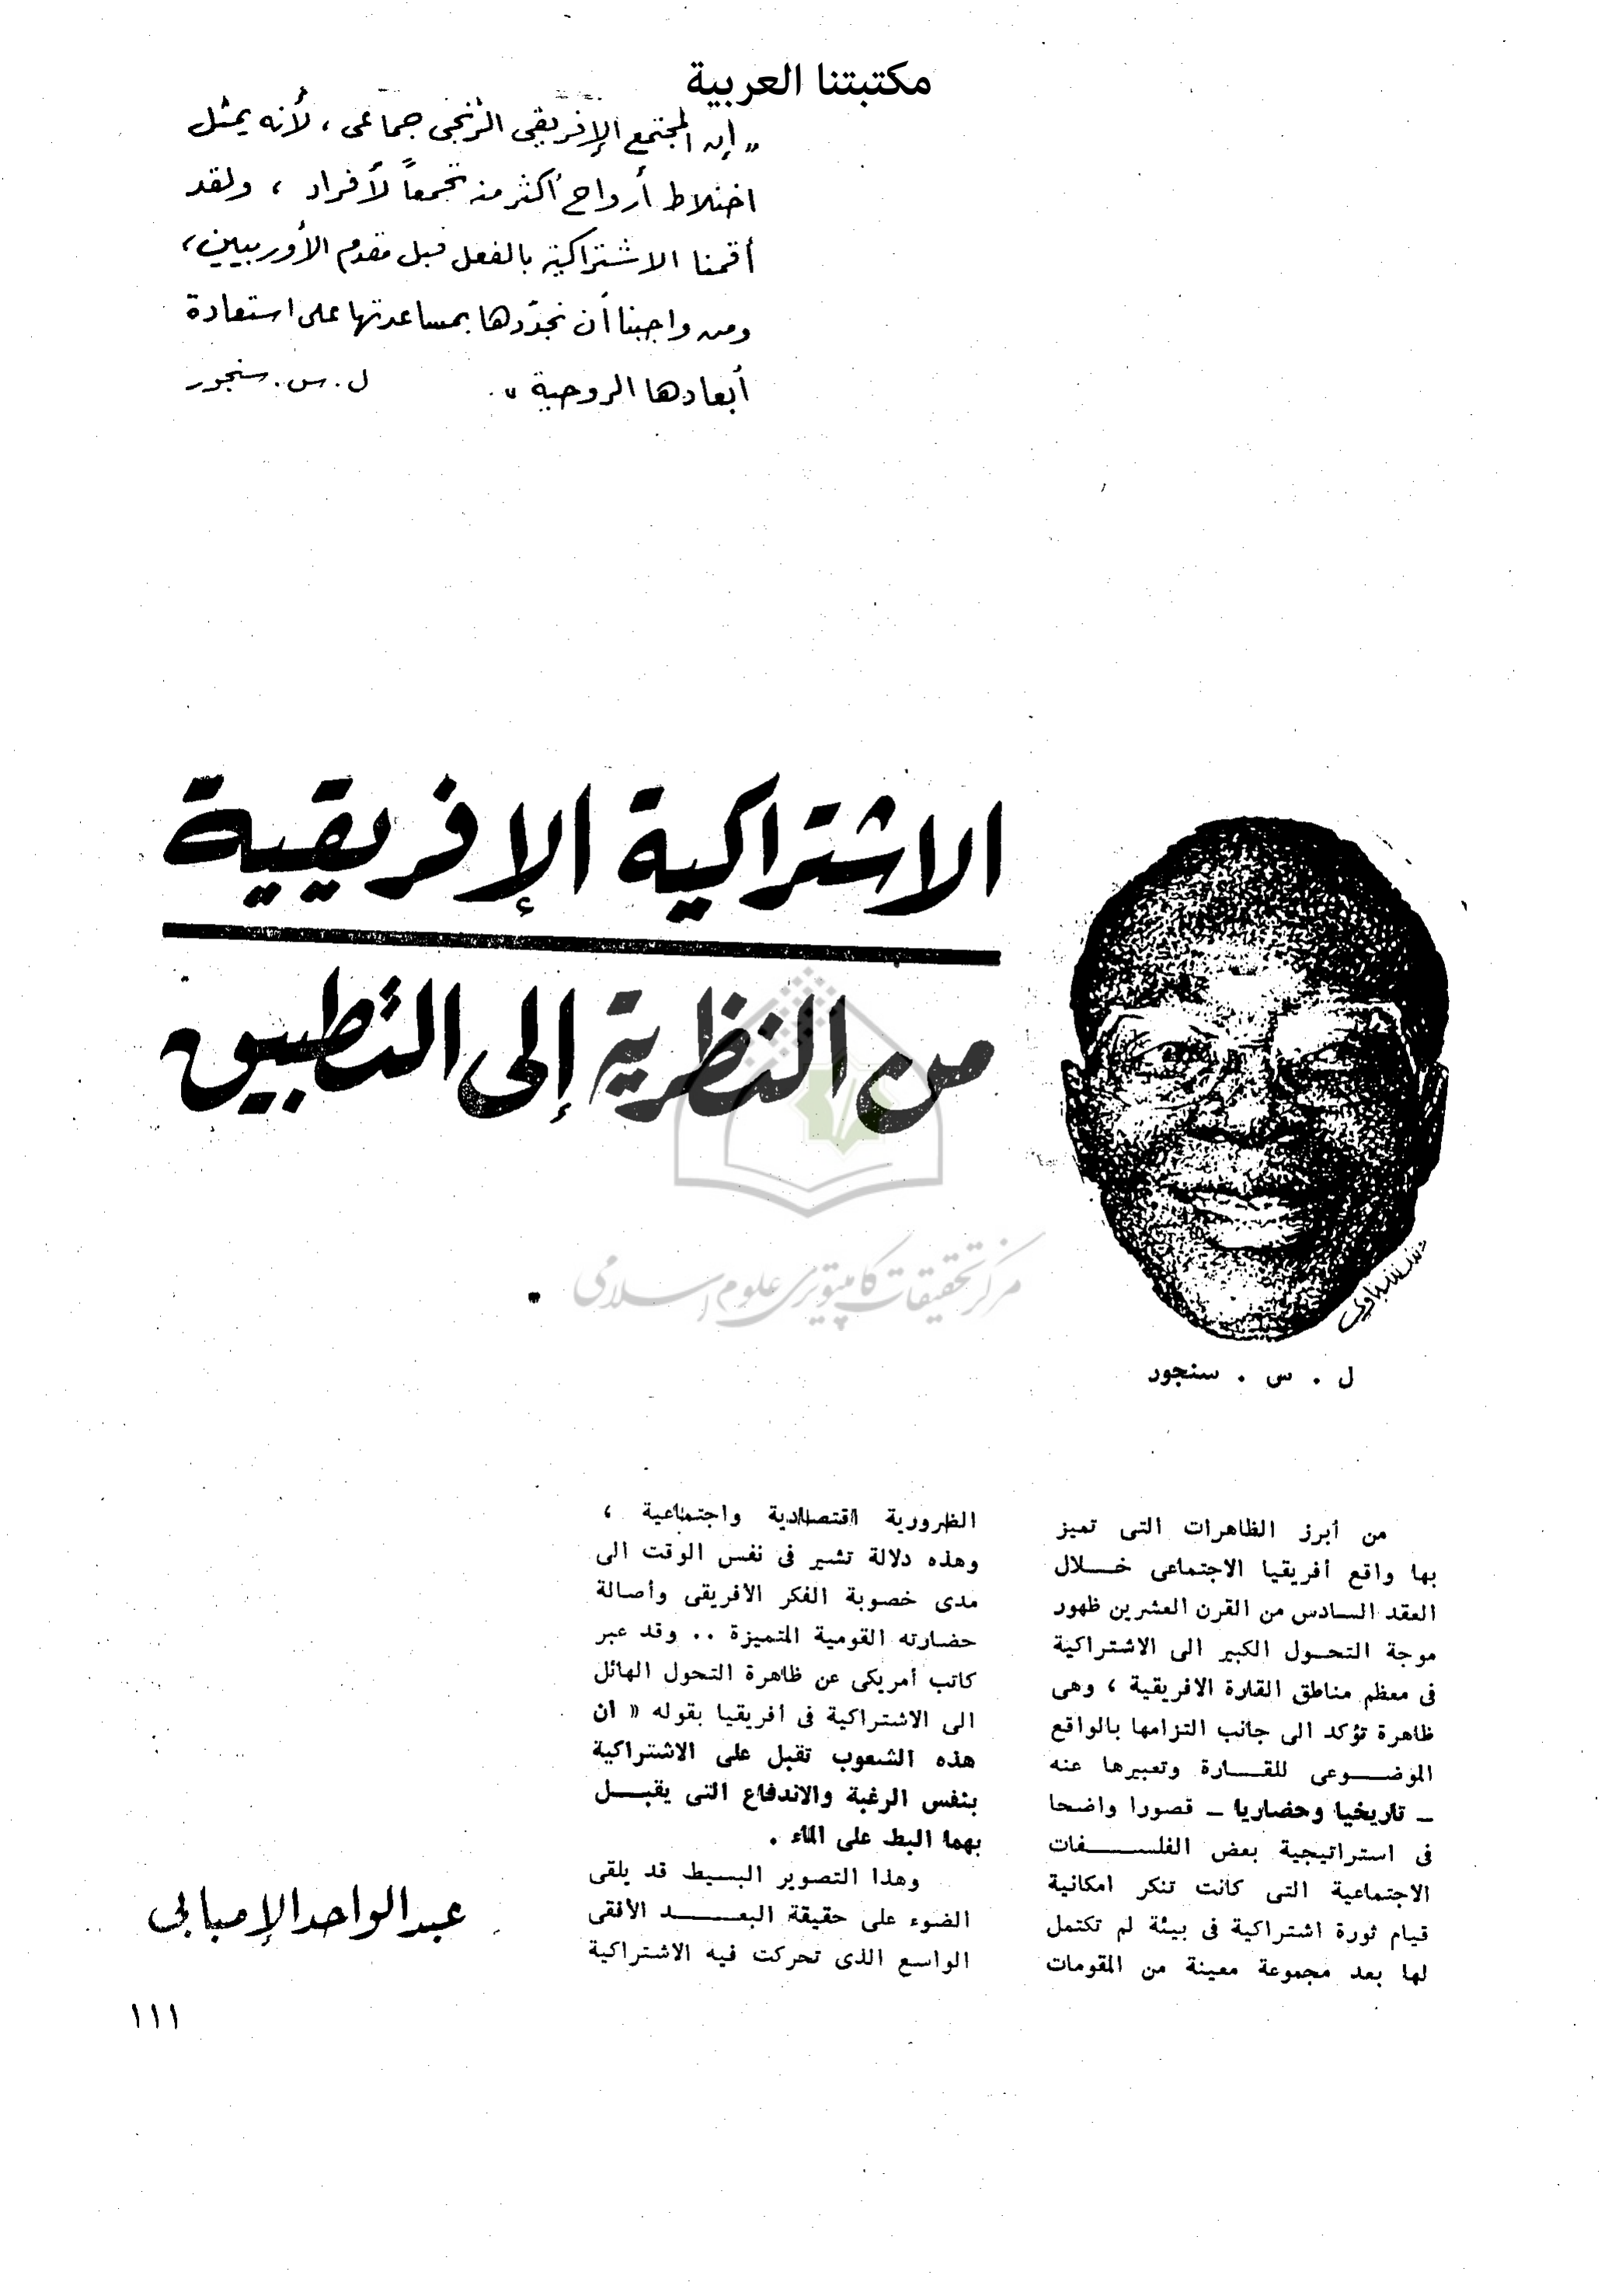 مكتبتنا العربية
„ إن المجتمع الإفريقى الزنجى جماعى ، لأنه يمثل
اختلاط أرواح أكثر منه تجمعاً لأفراد ، ولقد
أقمنا الاشتراكية بالفعل قبل مقدم الأوربيين ،
ومن واجبنا أن نجدّدها بمساعدتها على استعادة
أبعادها الروحية „ .
ل . س . سنجور
الاشتراكية الإفريقية
من النظرية إلى التطبيق
مركز تحقيقات كامپيوترى علوم اسلامى
ل . س . سنجور
من أبرز الظاهرات التى تميز
بها واقع أفريقيا الاجتماعى خــلال
العقد السادس من القرن العشرين ظهور
موجة التحـول الكبير الى الاشتراكية
فى معظم مناطق القارة الافريقية ، وهى
ظاهرة تؤكد الى جانب التزامها بالواقع
الموضــوعى للقــارة وتعبيرها عنه
ــ تاريخيا وحضاريا ــ قصورا واضحا
فى استراتيجية بعض الفلســفات
الاجتماعية التى كانت تنكر امكانية
قيام ثورة اشتراكية فى بيئة لم تكتمل
لها بعد مجموعة معينة من المقومات
الظرورية اقتصادية واجتماعية ،
وهذه دلالة تشير فى نفس الوقت الى
مدى خصوبة الفكر الأفريقى وأصالة
حضارته القومية المتميزة .. وقد عبر
كاتب أمريكى عن ظاهرة التحول الهائل
الى الاشتراكية فى أفريقيا بقوله « ان
هذه الشعوب تقبل على الاشتراكية
بنفس الرغبة والاندفاع التى يقبــل
بهما البط على الماء .
وهذا التصوير البسيط قد يلقى
الضوء على حقيقة البعـــد الأفقى
الواسع الذى تحركت فيه الاشتراكية
عبد الواحد الإمبابى
١١١